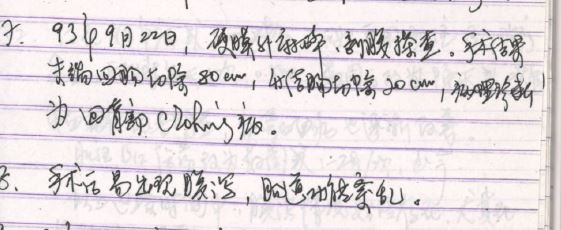 7. 93年9月22日,硬膜外麻醉,剖腹探查。手术结果
末端回肠切除80cm,升结肠切除20cm,病理诊断
为回盲部Crohn's病。
8. 手术后易出现腹泻,肠道功能紊乱。